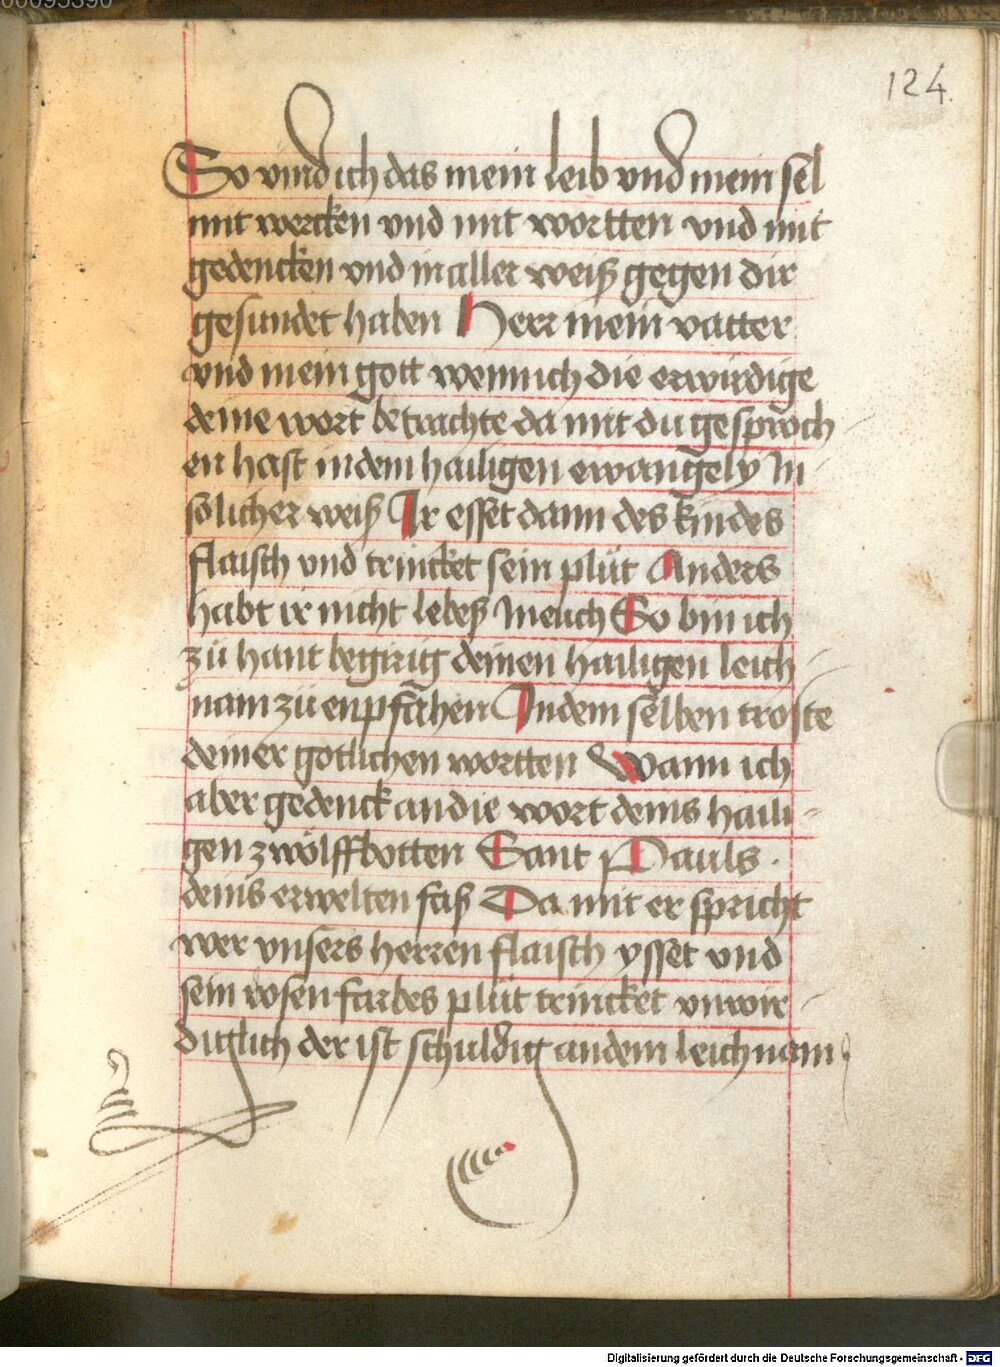 00095390
124.
So vind ich das mein leib vnd mein sel
mit wercken vnd mit wortten vnd mit
gedencken vnd in aller weiß gegen dir
gesundet haben Herr mein vatter
vnd mein gott wenn ich die erwirdige
deine wort betrachte da mit du gesproch
en hast in dem hailigen ewangely In
solicher weiß Ir esset dann des kindes
flaisch vnd trincket sein plůt Anders
habt ir nicht lebeß Ineüch So bin ich
zů hant begirig deinen hailigen leich
nam zů enpfahen In dem selben troste
deiner götlichen wortten Wann ich
aber gedenck an die wort deins haili-
gen zwölffbotten Sant Pauls ·
deins erwelten faß Da mit er spricht
wer vnsers herren flaisch ysset vnd
sein rosen farbes plůt trincket vnwir-
diglich der ist schuldig an dem leichnam
Digitalisierung gefördert durch die Deutsche Forschungsgemeinschaft - DFG